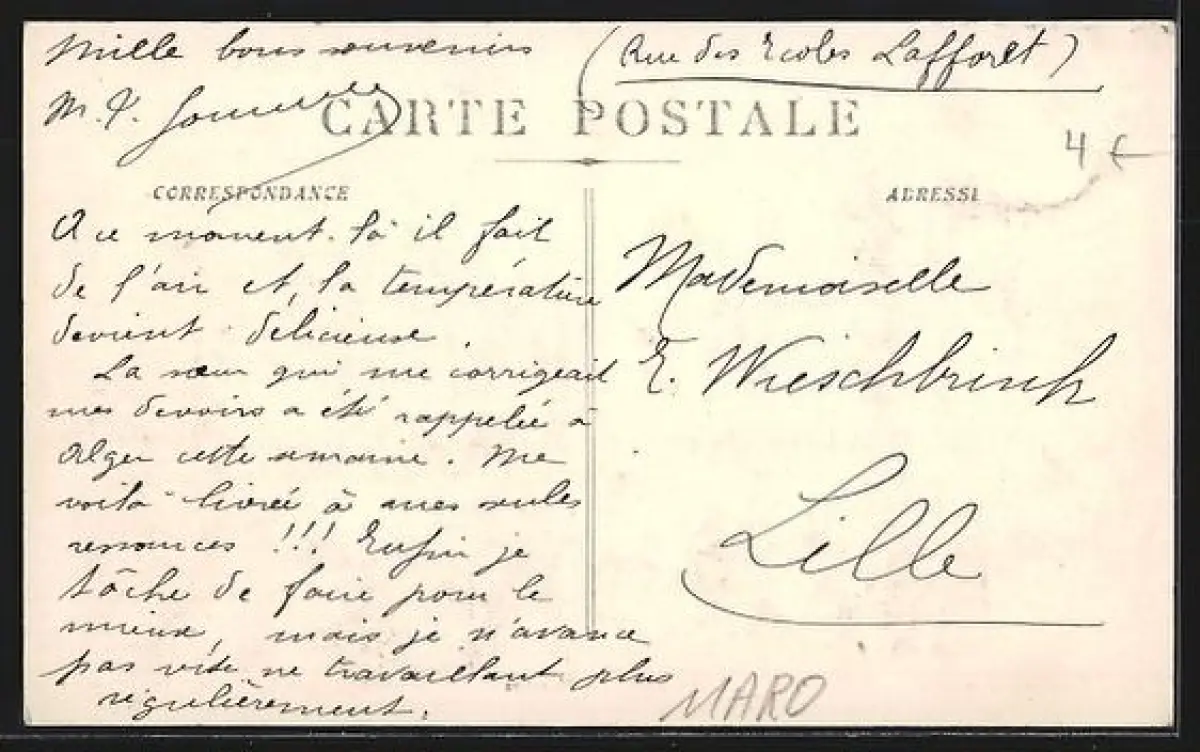 Mille bons souvenirs
(Rue des Ecoles Lafforet)
M. J.
CARTE POSTALE
4 €
CORRESPONDANCE
ADRESSE
A ce moment-là il fait
de l'air et, la température
devient délicieuse.
La sœur qui me corrigeait
mes devoirs a été rappelée à
Alger cette semaine. Me
voilà livrée à mes seules
ressources !!! Enfin je
tâche de faire pour le
mieux, mais je n'avance
pas vite ne travaillant plus
régulièrement.
Mademoiselle
E. Wieschbrink
Lille
MARO